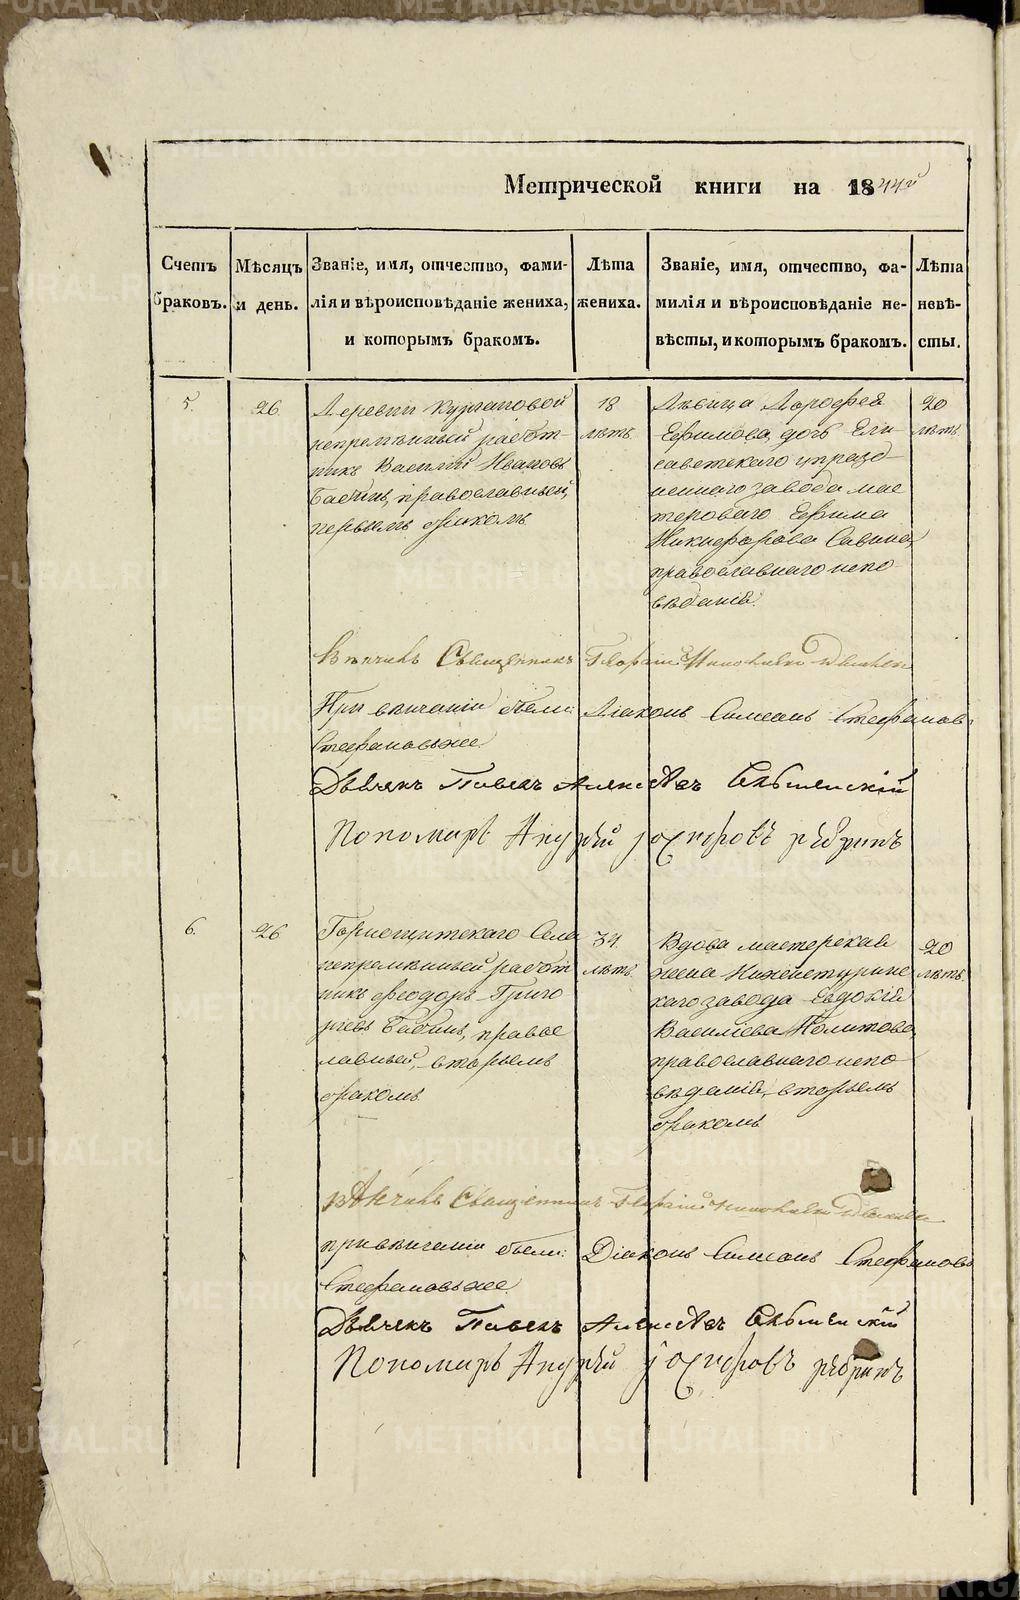 Метрической книги на 1844й
Счетъ браковъ.
Мѣсяцъ и день.
Званіе, имя, отчество, фами-
лія и вѣроисповѣданіе жениха,
и которымъ бракомъ.
Лѣта
жениха.
Званіе, имя, отчество, фа-
милія и вѣроисповѣданіе не-
вѣсты, и которымъ бракомъ.
Лѣта
невѣ-
сты.
5.
26.
Деревни Кургановой
непремѣнный работ-
никъ Василій Ивановъ
Бабинъ, православный,
первымъ бракомъ
18
лѣтъ.
Дѣвица Дорофеа
Ефимова, дочь Ели
саветскаго упразд
неннаго завода мас
терового Ефима
Никифорова Савина,
православнаго испо
вѣданія.
20
лѣтъ.
Вѣнчалъ Священникъ Георгій
При вѣнчаніи были: Діаконъ Симеонъ Стефановъ
Стефановъ же
Дьячекъ Павелъ Алексѣевъ
Пономарь Андрей
6.
26
Горнощитскаго Села
непремѣнный работ
никъ Феодоръ Григо
рьевъ Бабинъ, правос
лавный, вторымъ
бракомъ
34.
лѣтъ.
Вдова мастерская
жена Нижнетуринс
каго завода Евдокія
Василіева Политова,
православнаго испо
вѣданія, вторымъ
бракомъ
20
лѣтъ.
вѣнчалъ Священникъ Георгій
при вѣнчаніи были: Діаконъ Симеонъ Стефановъ
Стефановъ же
Дьячекъ Павелъ Алексѣевъ
Пономарь Андрей
METRIKI.GASO-URAL.RU